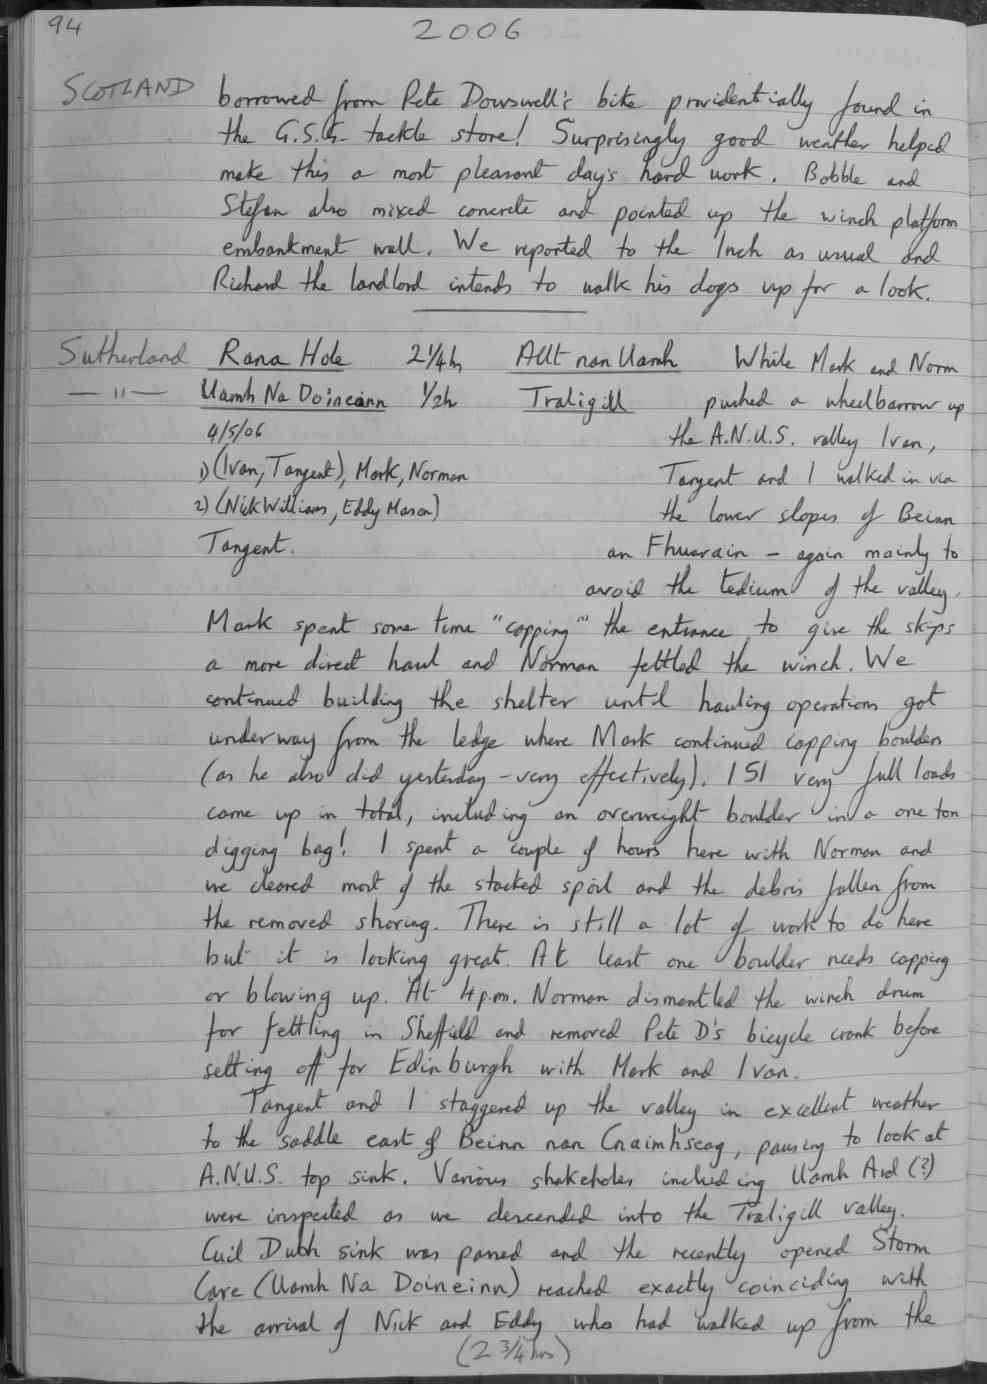 94
2006
SCOTLAND borrowed from Pete Dowswell's bike providentially found in
the G.S.G. tackle store! Surprisingly good weather helped
make this a most pleasant day's hard work. Bobble and
Stefan also mixed concrete and pointed up the winch platform
embankment wall. We reported to the Inch as usual and
Richard the landlord intends to walk his dogs up for a look.
Sutherland Rana Hole 2¼h Allt nan Uamh While Mark and Norm
— " — Uamh Na Doineann ½h Traligill pushed a wheelbarrow up
4/5/06 the A.N.U.S. valley Ivan,
1) (Ivan, Tangent), Mark, Norman Tangent and I walked in via
2) (Nick Williams, Eddy Mason) the lower slopes of Beinn
Tangent. an Fhuarain - again mainly to
avoid the tedium of the valley.
Mark spent some time "capping" the entrance to give the skips
a more direct haul and Norman fettled the winch. We
continued building the shelter until hauling operations got
underway from the ledge where Mark continued capping boulders
(as he also did yesterday - very effectively). 151 very full loads
came up in total, including an overweight boulder in a one ton
digging bag! I spent a couple of hours here with Norman and
we cleared most of the stacked spoil and the debris fallen from
the removed shoring. There is still a lot of work to do here
but it is looking great. At least one boulder needs capping
or blowing up. At 4p.m. Norman dismantled the winch drum
for fettling in Sheffield and removed Pete D's bicycle crank before
setting off for Edinburgh with Mark and Ivan.
Tangent and I staggered up the valley in excellent weather
to the saddle east of Beinn nan Cnaimhseag, pausing to look at
A.N.U.S. top sink. Various shakeholes including Uamh Ard (?)
were inspected as we descended into the Traligill valley.
Cuil Dubh sink was passed and the recently opened Storm
Cave (Uamh Na Doineinn) reached exactly coinciding with
the arrival of Nick and Eddy who had walked up from the
(2 ¾ hrs)